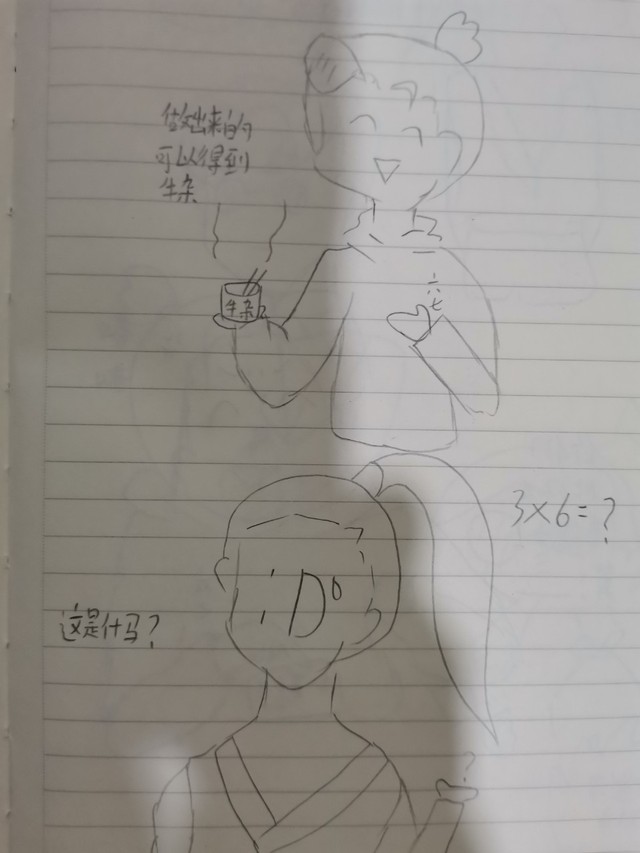 做出来的
可以得到
牛杂
牛杂
一
六
七
3×6=?
:D°
这是什马?
?